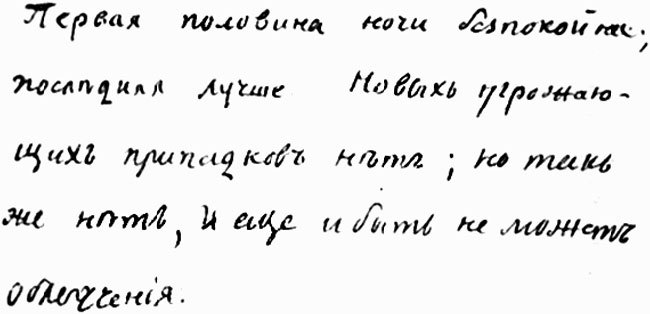 Первая половина ночи безпокойнѣе;
послѣдняя лучше Новыхъ угрожаю-
щихъ припадковъ нѣтъ; но такъ
же нѣтъ, и еще и быть не можетъ
облегченія.